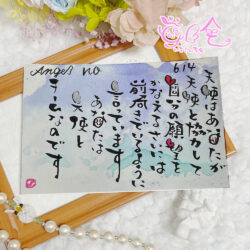 Angel no
614
天使はあなたが
天使と協力して
自分の願望を
かなえるためには
前向きでいるように
言っています
あなたは
天使と
チームなのです